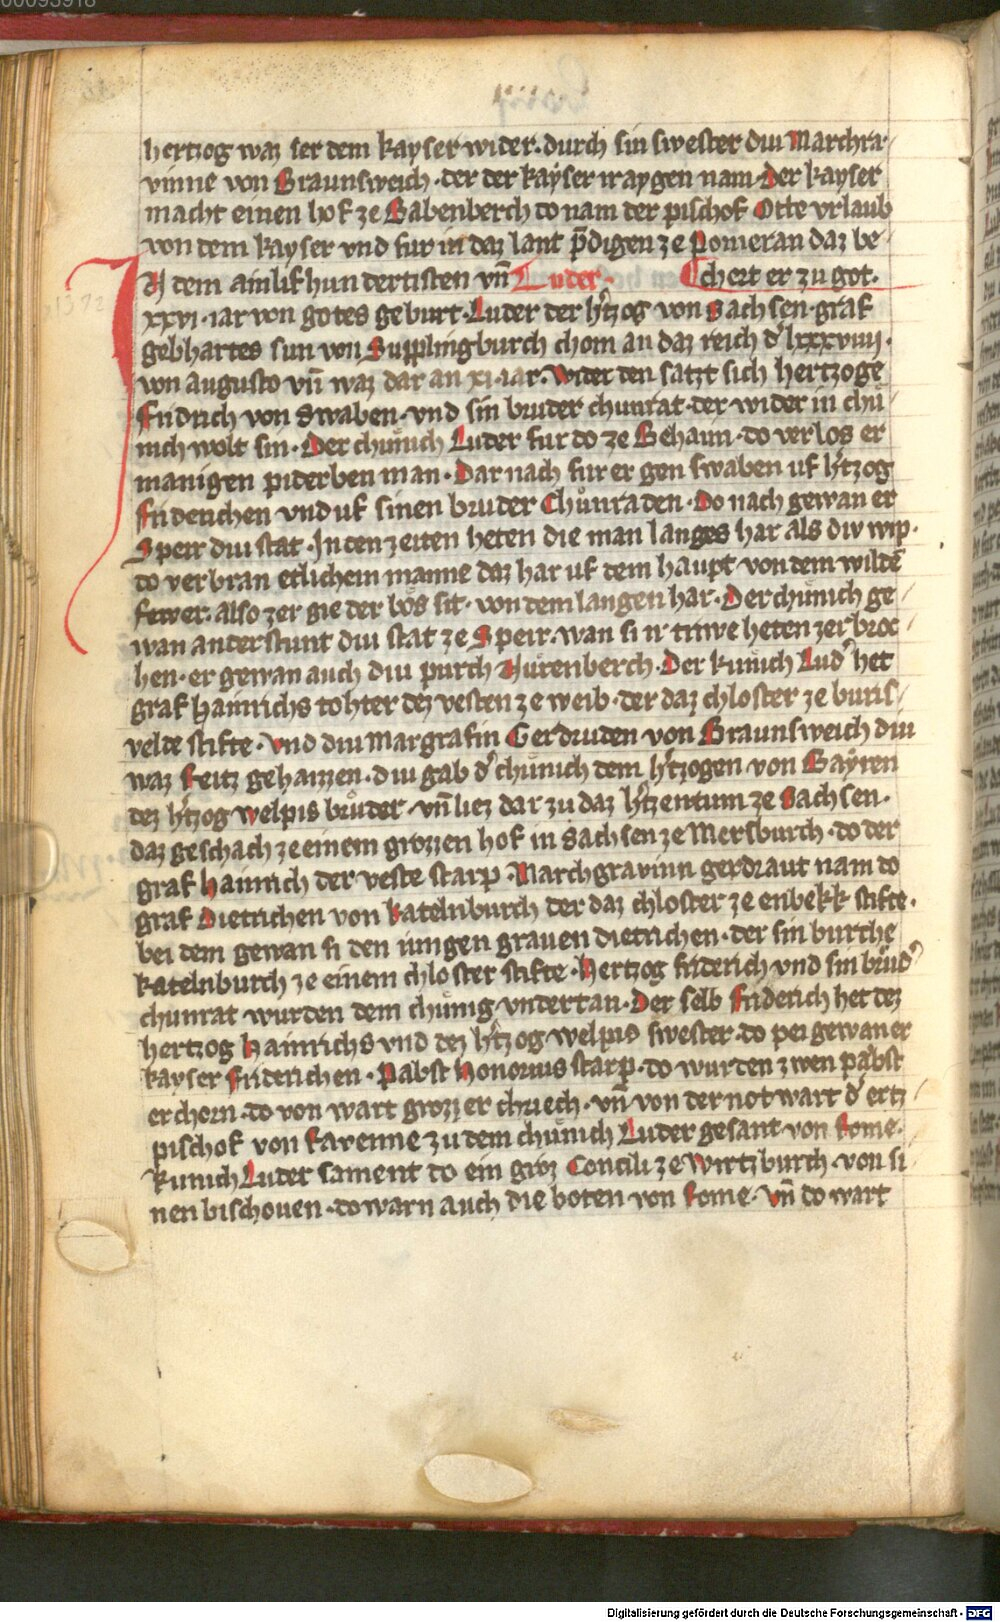 00093918
hertzog waz ser dem kayser wider. durch sin swester diu Marchra
vinne von Braunsweich. der der kayser ir aygen nam. Der kayser
macht einen hof ze Babenberch do nam der pischof Otte vrlaub
von dem kayser vnd fur in daz lant p̄digen ze Pomeran daz be
chert er zu got.
IN dem ainlif hundertisten vn̄ Luder.
xxvi. iar von gotes geburt. Luder der h̓tzog von Sachsen. graf
gebhartes sun von Supplingburch chom an daz reich d̓ lxxxviiii.
von augusto vn̄ waz dar an xi. iar. Wider den satzt sich hertzoge
Fridrich von Swaben. vnd sin bruder chunrat. der wider in chu
nich wolt sin. Der chuͤnich Luder fur do ze Behaim. do verlos er
manigen piderben man. Dar nach fur er gen swaben uf h̓tzog
Friderichen vnd uf sinen bruder Chuͦnraden. Do nach gewan er
Speir diu stat. In den zeiten heten die man langes har als div wip.
do verbran etlichem manne daz har uf dem haupt von dem wilde̅
fewer. also zergie der boͤs sit. von dem langen har. Der chuͤnich ge
wan anderstunt diu stat ze Speir. wan si ir triwe heten zerbroc
hen. er gewan auch diu purch Nuͤrenberch. Der kuͤnich Lud̓ het
graf Hainrichs tohter dez vesten ze weib. der daz chloster ze burs
velde stifte. Vnd diu Margrafin Gerdruden von Braunsweich diu
waz Reitz gehaizzen. diu gab d̓ chuͤnich dem h̓tzogen von Bayren
dez h̓tzog welpis bruͦder. vn̄ liez dar zu daz h̓tzentum ze Sachsen.
daz geschach ze einem grozzen hof in Sachsen ze Mersburch. do der
graf Hainrich der veste starp. Marchgravinn gerdraut nam do
graf Dietrichen von Katelnburch der daz chloster ze enbekk stifte.
bei dem gewan si den iungen grauen dietrichen. der sin burche
katelnburch ze einem chloster stifte. Hertzog friderich vnd sin bruͦd̓
chunrat wurden dem chuͤnig vndertan. Der selb Friderich het dez
hertzog Hainrichs vnd dez h̓tzog welpis swester. do pei gewan er
kayser Friderichen. Pabst Honorius starp. do wurden zwen pabst
erchorn. do von wart grozz er chriech. vn̄ von der not wart d̓ ertz
pischof von Ravenne zu dem chuͤnich Luder gesant von Rome.
kunich Luder sament do ein groz Concili ze Wirtzburch. von si
nen bischouen. do warn auch die boten von Rome. Vn̄ do wart
Digitalisierung gefördert durch die Deutsche Forschungsgemeinschaft - DFG